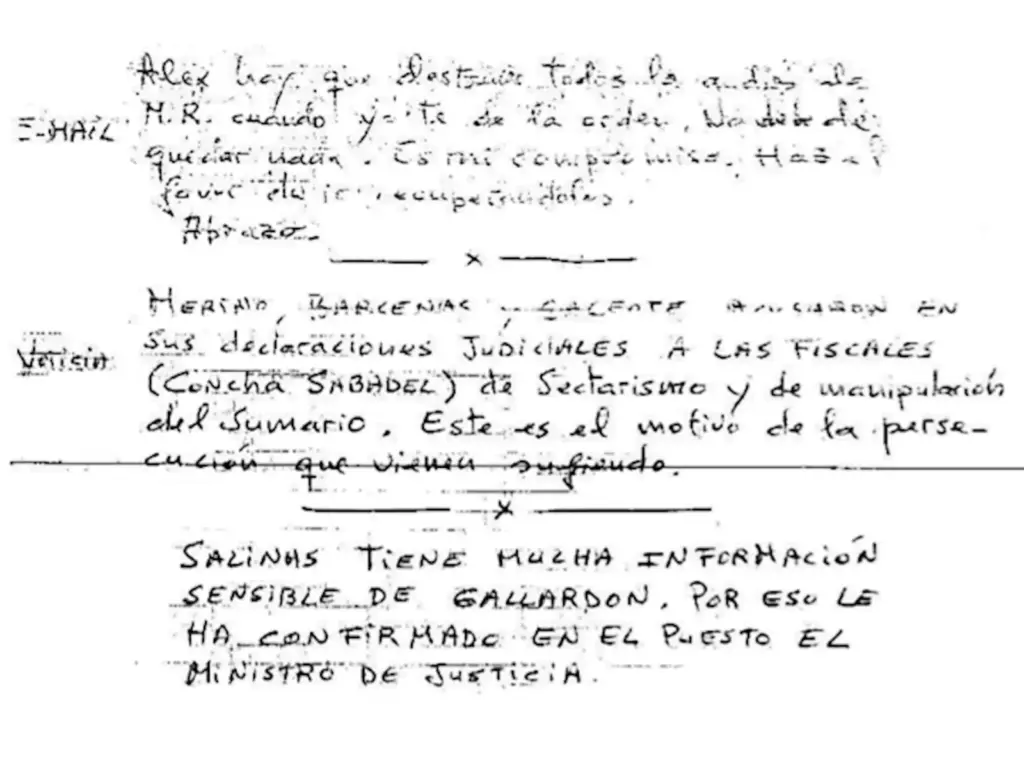 Alex hay que destruir todos los audios de
E-MAIL M.R. cuando yo te de la orden. No debe de
quedar nada. Es mi compromiso. Haz el
favor de ir recuperándolos.
Abrazo.
x
MERINO, BARCENAS y GALEOTE ACUSARON EN
Noticia sus declaraciones JUDICIALES A LAS FISCALES
(CONCHA SABADEL) de Sectarismo y de manipulación
del Sumario. Este es el motivo de la perse-
cución que vienen sufriendo.
x
SALINAS TIENE MUCHA INFORMACIÓN
SENSIBLE DE GALLARDON. POR ESO LE
HA CONFIRMADO EN EL PUESTO EL
MINISTRO DE JUSTICIA.